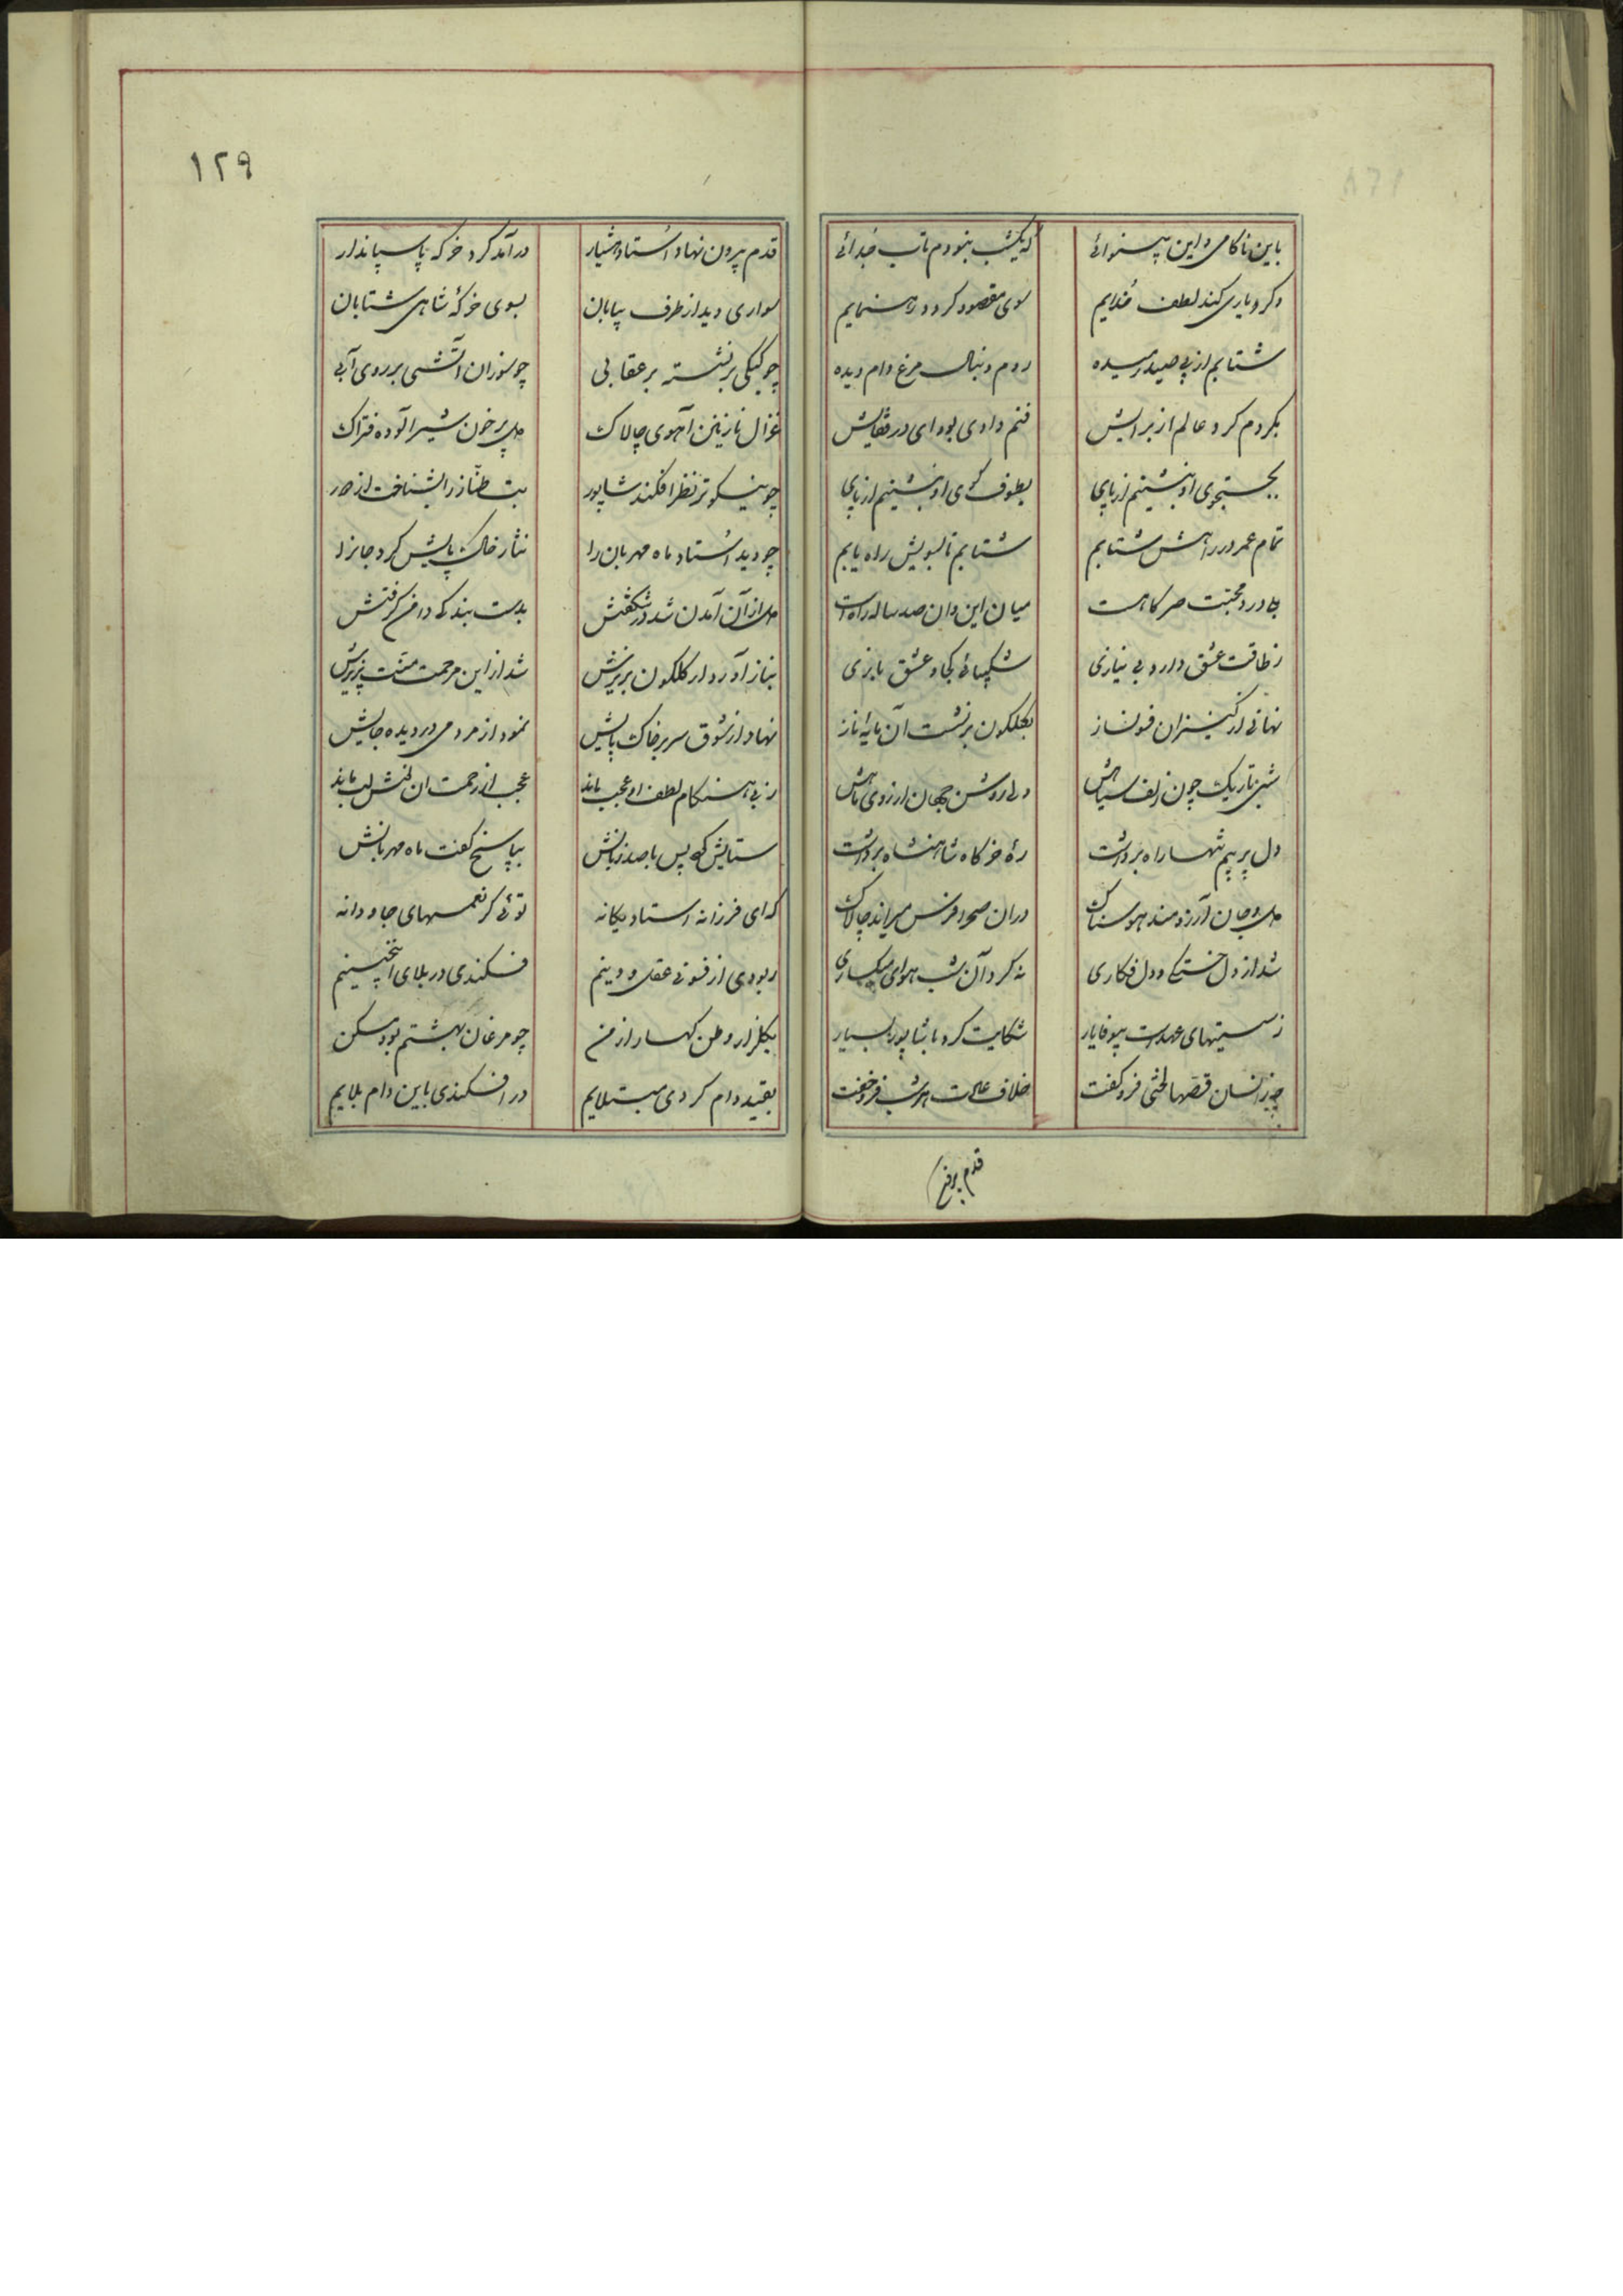 باین ناکامی و این بینوائی که یکشب نبودم تاب جدائی
وگر یاری کند لطف خدایم سوی مقصود گردد رهنمایم
شتابم از پی صید رمیده روم دنبال مرغ دام دیده
بگردم گرد عالم از برایش فتم وادی بوادی در قفایش
بجستجوی او ننشینم از پای بطوف کوی او ننشینم از پای
تمام عمر در راهش شتابم شتابم تا بسویش راه یابم
ولی درد محبت میان این وان صد ساله راه است
ز طاقت عشق دارد بی نیازی شکیبائی کجا و عشق بازی
نهانی از کنیزان فسونساز بگلگون برنشست آن مایه ناز
شبی تاریک چون زلف سیاهش ولی روشن جهان از روی ماهش
دل پر بیم تنها راه برداشت ره خرگاه شاهنشاه برداشت
دل و جان آرزومند هوسناک دران صحرا فرس میراند چالاک
شد از دل خستگی و دل فکاری نه کرد آن شب هوای میگساری
ز سستیهای عهدست بیوفا یار شکایت کرد با شاپور بسیار
چو زانسان قصها لختی فرو گفت خلاف عادت هر شب فرو خفت
قدم بیرون
١٢٩
قدم بیرون نهاد استاد هشیار درآمد گرد خرگه پاسبانوار
سواری دید از طرف بیابان بسوی خرگه شاهی شتابان
چو کبکی برنشسته بر عقابی چو سوزان آتشی بر روی آبی
غزال نازنین آهوی چالاک ولی پر خون شیر آلوده فتراک
چو نیکوتر نظر افکند شاپور بت طناز را بشناخت از دور
چو دید استاد ماه مهربان را نثار خاک پایش کرد جانرا
دل از آن آمدن شد در شگفتش بدست بندگی دامن گرفتش
بناز آورد از گلگون بزیرش شد از این مرحمت منت پذیرش
نهاد از شوق سر بر خاک پایش نمود از مردمی در دیده جایش
ز بی هنگام لطف او عجب ماند عجب از زحمت ان نش لب ماند
ستایش کرد پس با صد زبانش بپاسخ گفت ماه مهربانش
که ای فرزانه استاد یگانه توئی کز نغمهای جاودانه
ربودی از فسونی عقل و دینم فکندی در بلای اینچنینم
بگلزار وطن کهسار ارمن چو مرغان بهشتم بود مسکن
بقید دام کردی مبتلایم در افکندی باین دام بلایم